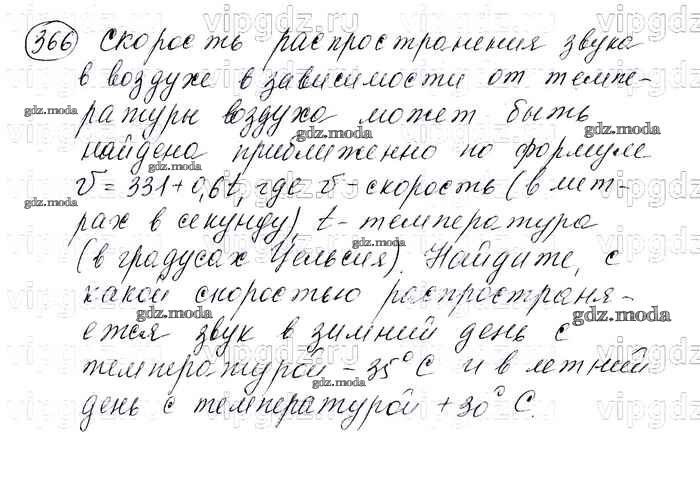 366 Скорость распространения звука
в воздухе в зависимости от темпе-
ратуры воздуха может быть
найдена приближенно по формуле
v = 331 + 0,6t, где v - скорость (в мет-
рах в секунду), t - температура
(в градусах Цельсия). Найдите, с
какой скоростью распространя-
ется звук в зимний день с
температурой - 35° C и в летний
день с температурой + 30° C.